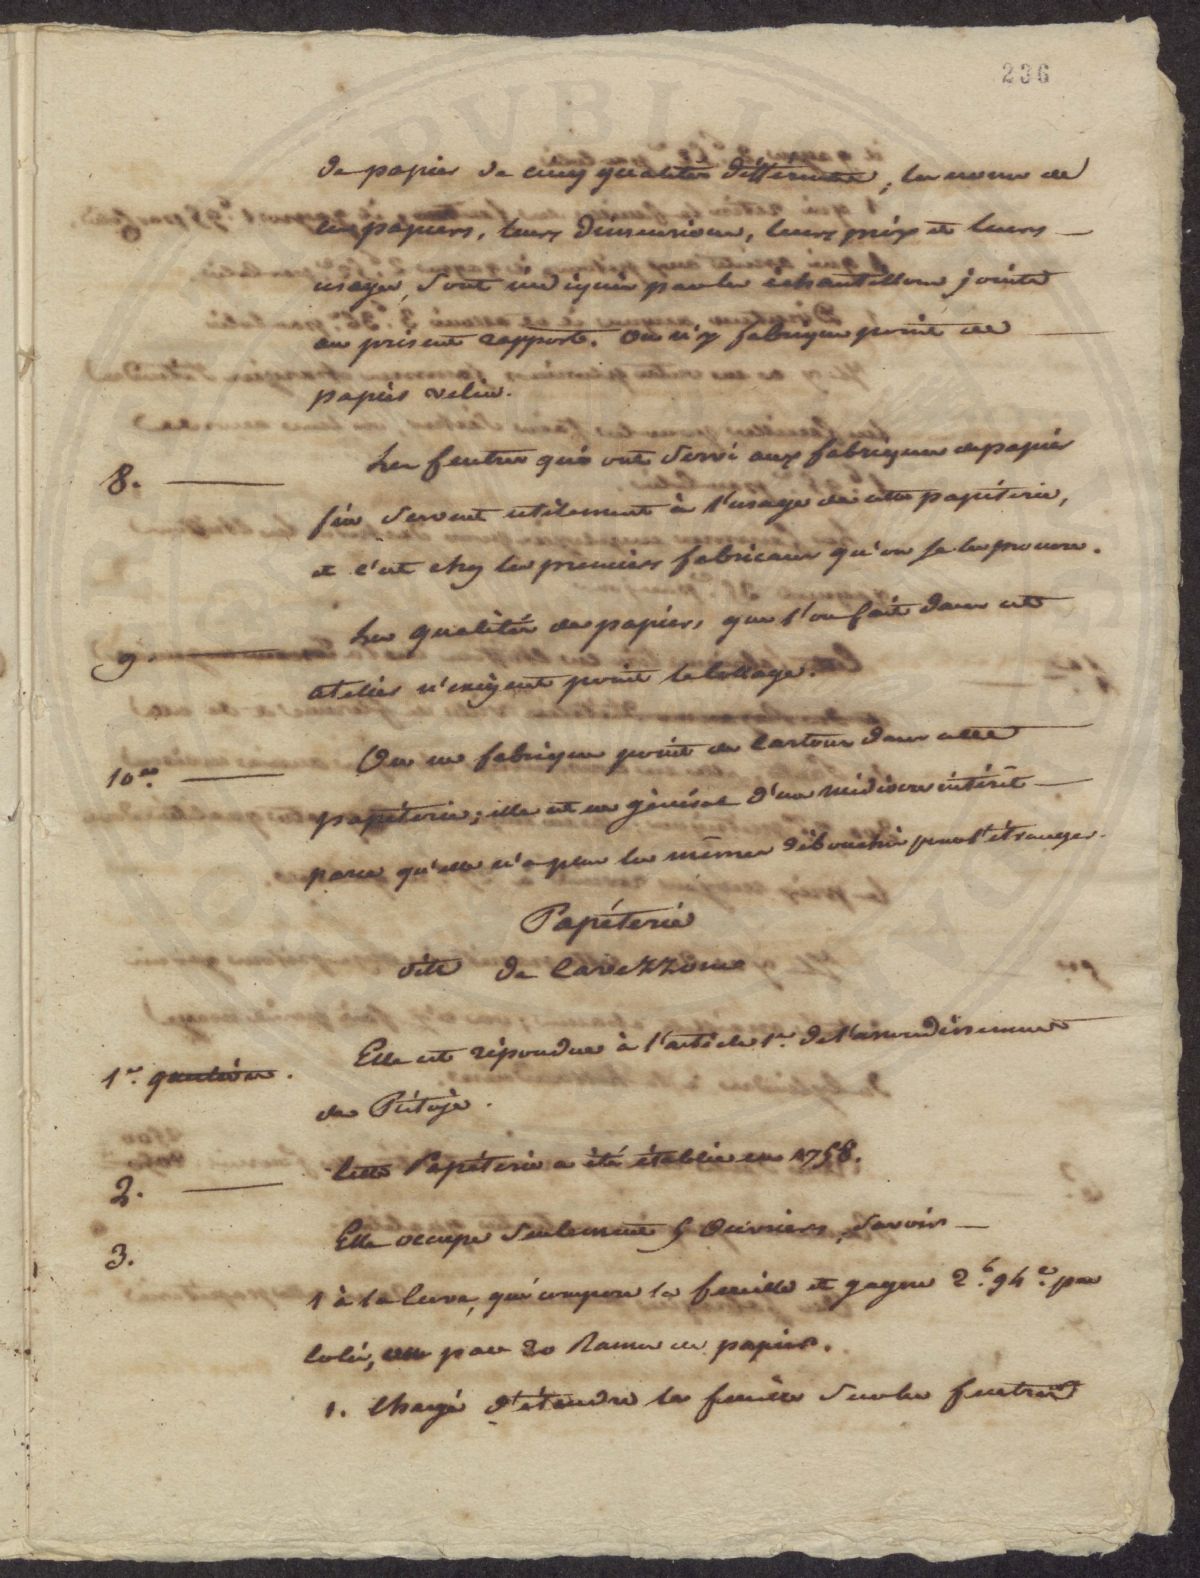 236
de papier de cinq qualités différentes, les noms de
ces papiers, leurs dimensions, leurs prix et leurs
usages, sont indiqués par les echantillons joints
au présent rapport. On n'y fabrique point de
papier velin.
8. Les feutres qui ont servi aux fabriques de papier
fin servent utilement à l'usage de cette papéterie,
et c'est chez les premiers fabricans qu'on se les procure.
9. Les qualités de papiers, que l'on fait dans cet
atelier n'exigent point le collage.
10.e On ne fabrique point de cartons dans cette
papéterie; elle est en général d'un médiocre intérêt
parce qu'elle n'a plus les mêmes débouchés pour l'étranger.
Papéterie
dite de Carezzone
1.re question. Elle est répondue à l'article 1.er de l'arrondissement
de Pistoje.
2. Cette Papéterie a été établie en 1758.
3. Elle occupe seulement 5 Ouvriers, savoir
1 à la cuve, qui compose la feuille et gagne 2.f 94.c par
colis, ou par 20 Rames de papier.
1. Chargé d'étendre la feuille sur les feutres